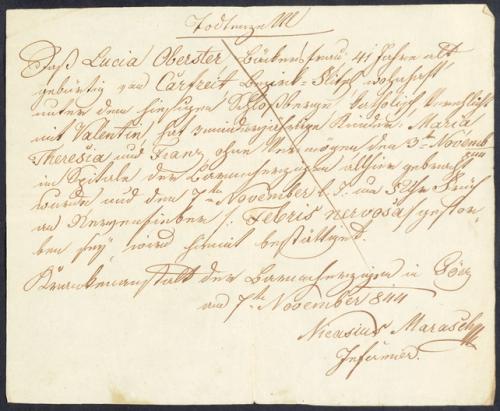 Todtenzettl
Daß Lucia Oberster, Bäckersfrau, 41 Jahre alt
gebürtig von Carfreit Bezirk Flitsch wohnhaft
unter dem hiesigen Schloßberge, katholisch verehlicht
mit Valentin, hat 3 minderjährige Kinder: Maria
Theresia und Franz ohne Vermögen den 3ten Novemb
im Spitale der Barmherzigen allhier gebracht
wurde und den 7ten November l. J. um Uhr Früh
am Nervenfieber /: Febris nervosa / gestor-
ben sey, wird hiemit bestättiget.
Krankenanstalt der Barmherzigen in Görz
am 7ten November 844
Nicasius Marasch
Infirmier.